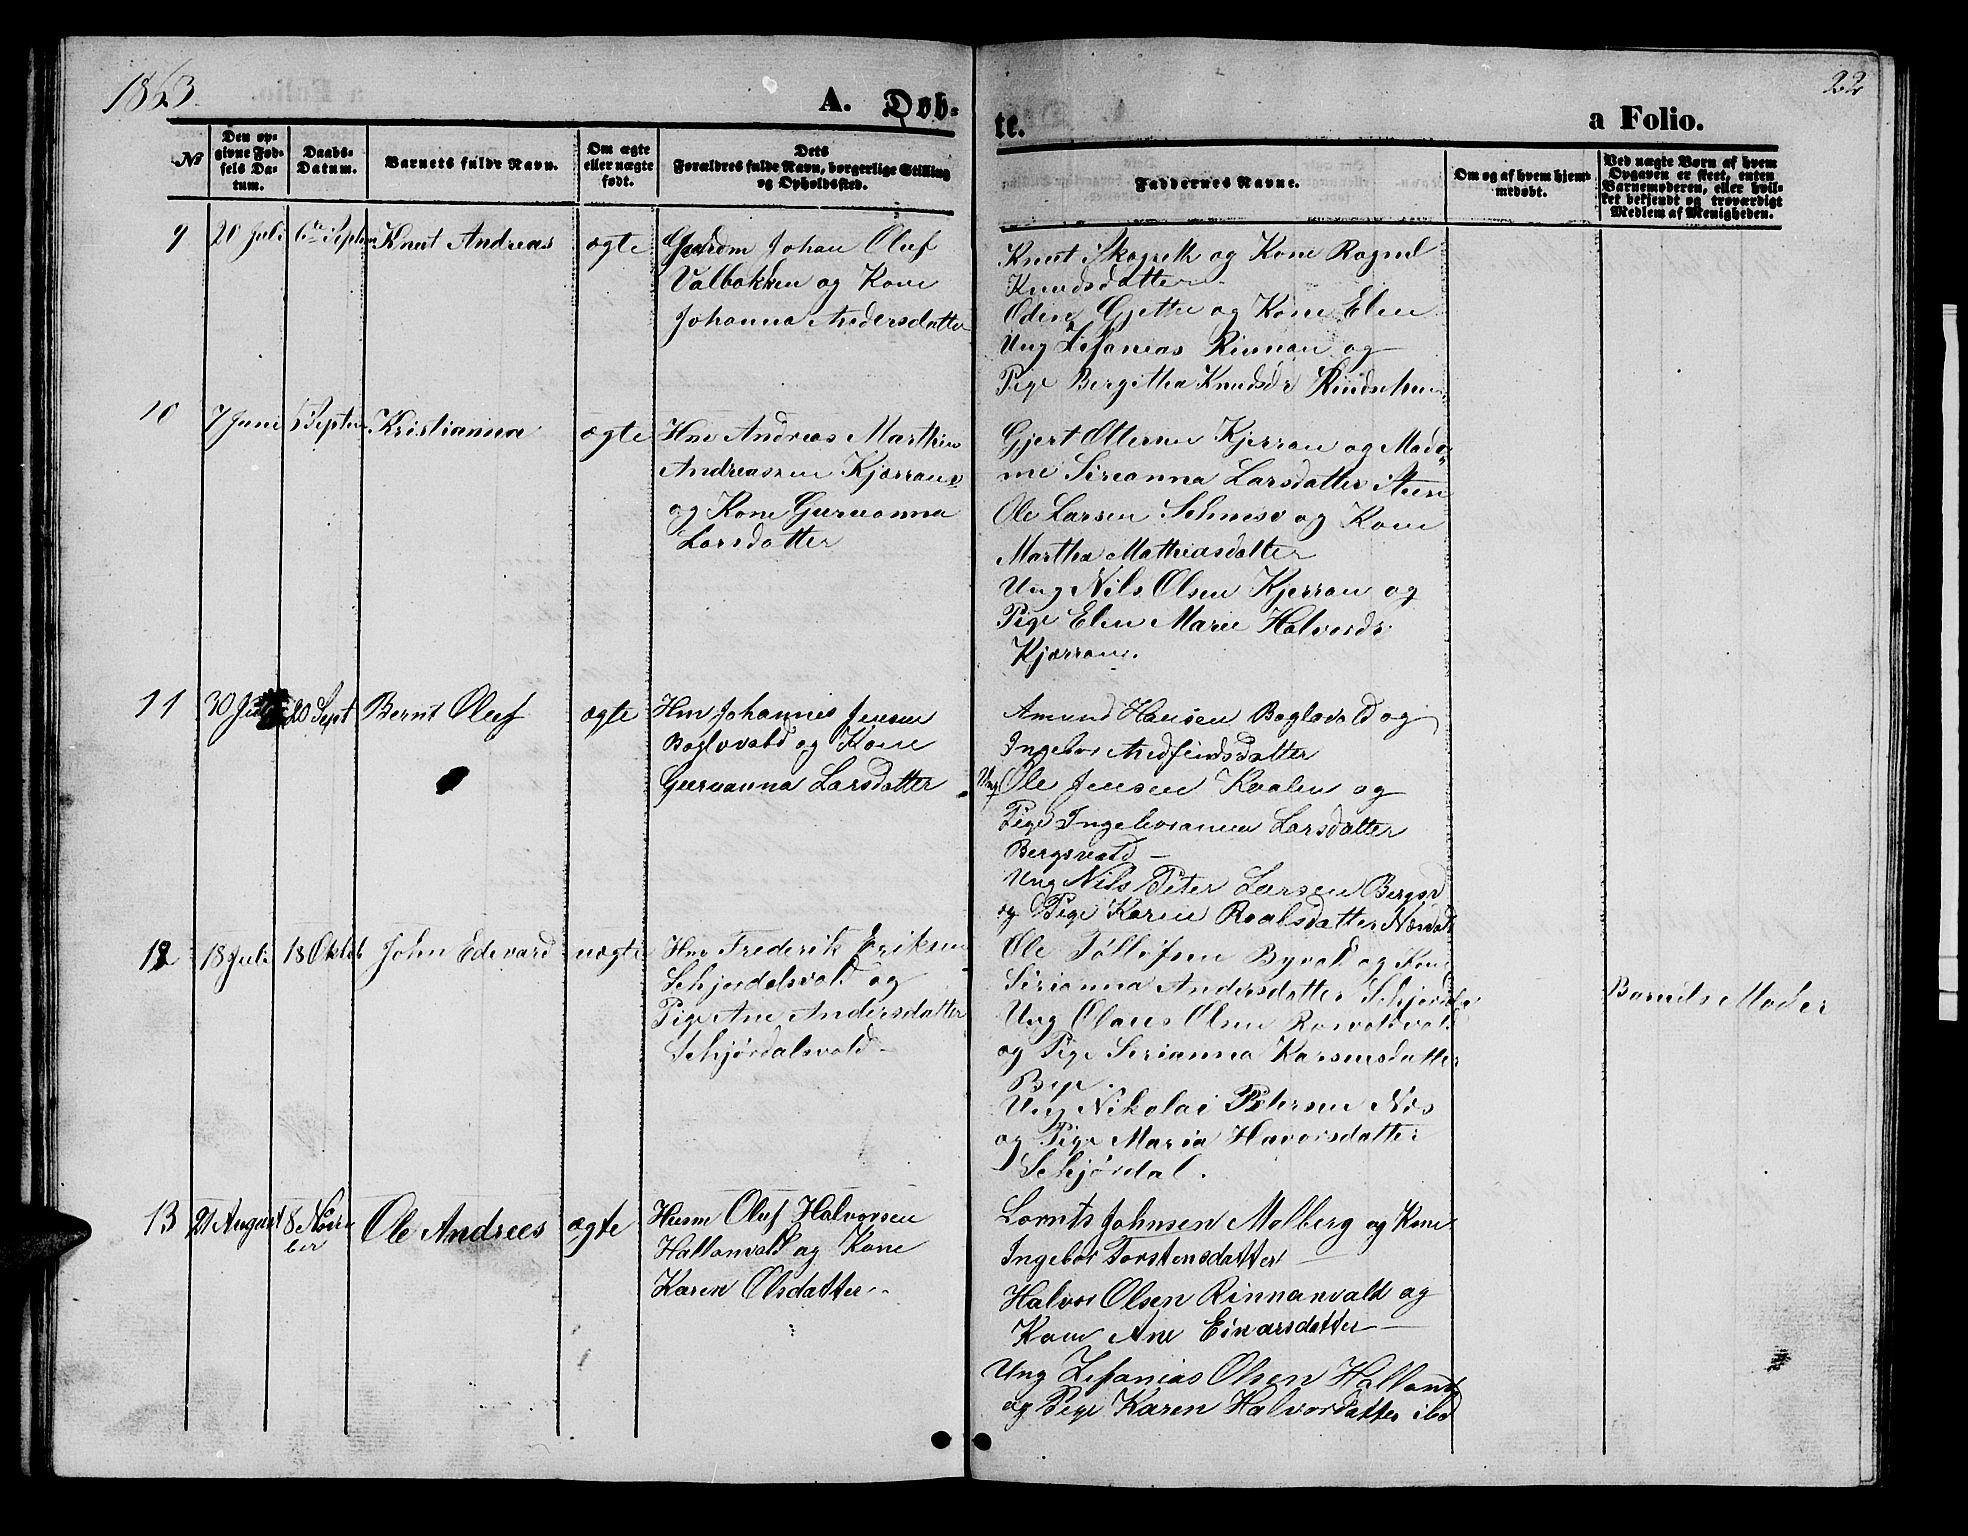 1863.
22
A. Døb-
te.
a Folio.
No
Den op-
givne Fød-
sels Da-
tum.
Daabs-
Datum.
Barnets fulde Navn.
Om ægte
eller uægte
født.
Dets
Forældres fulde Navn, borgerlige Stilling
og Opholdssted.
Faddernes Navne.
Om og af hvem hjem-
medøbt.
Ved uægte Børn af hvem
Opgaven er skeet, enten
Barnemoderen, eller hvil-
ket bekjendt og troværdigt
Medlem af Menigheden.
9
20 Juli
6te Septem
Knut Andreas
ægte
Johan Oluf
Valbakken og Kone
Johanna Andersdatter
Knut Skogseth og Kone Ragnel
Knudsdatter
Odin Gjette og Kone Elen
Ung Zefanias Rinnan og
Pige Bergitha Knudsdr
10
7 Juni
6 Septem
Kristianna
ægte
Hm Andreas Marthin
Andreassen Kjærran
og Kone Guruanna
Larsdatter
Gjert Ottersen Kjerran og Mada-
me Sirianna Larsdatter Steen
Ole Larsen og Kone
Martha Mathiasdatter
Ung Nils Olsen Kjerran og
Pige Elen Marie Halvordr
Kjærran.
11
30
20 Sept
Bernt Oluf
ægte
Hm Johannes Jensen
Boglovald og Kone
Guruanna Larsdatter
Amund Hansen Boglovald og
Ingebor Andfindsdatter
Ung Ole Jensen Kvalen og
Pige Ingeboranna Larsdatter
Bergsvald -
Ung Nils Peter Larsen Bergsv
og Pige Karen Roalsdatter
12
18 Juli
18 Oktob
John Edevard
uægte
Hm Frederik Eriksen
Schjerdalsvald og
Pige Ane Andersdatter
Schjørdalsvald -
Ole Tollofsen Byvald og Kone
Sirianna Andersdatter
Ung Olaus Olsen
og Pige Serianna
Bye.
Ung Nikolai Petersen Næs
og Pige Maria Havorsdatter
Schjørdal.
Barnets Moder
13
21 August
8 Novem
ber
Ole Andrees
ægte
Husm Oluf Halvorsen
Hallanvald og Kone
Karen Olsdatter -
Lornts Johnsen Molberg og Kone
Ingebor Torstensdatter -
Halvor Olsen Rinnanvald og
Kone Ane Einarsdatter -
Ung Zefanias Olsen Halland
og Pige Karen Halvordatter ibd